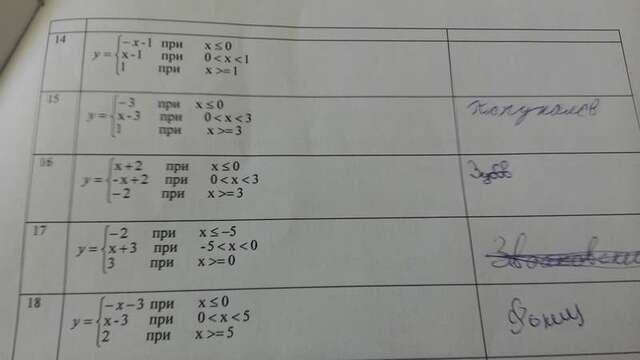 14
y = { -x-1 при x ≤ 0
x-1 при 0 < x < 1
1 при x >= 1
15
y = { -3 при x ≤ 0
x-3 при 0 < x < 3
1 при x >= 3
16
y = { x+2 при x ≤ 0
-x+2 при 0 < x < 3
-2 при x >= 3
17
y = { -2 при x ≤ -5
x+3 при -5 < x < 0
3 при x >= 0
18
y = { -x-3 при x ≤ 0
x-3 при 0 < x < 5
2 при x >= 5